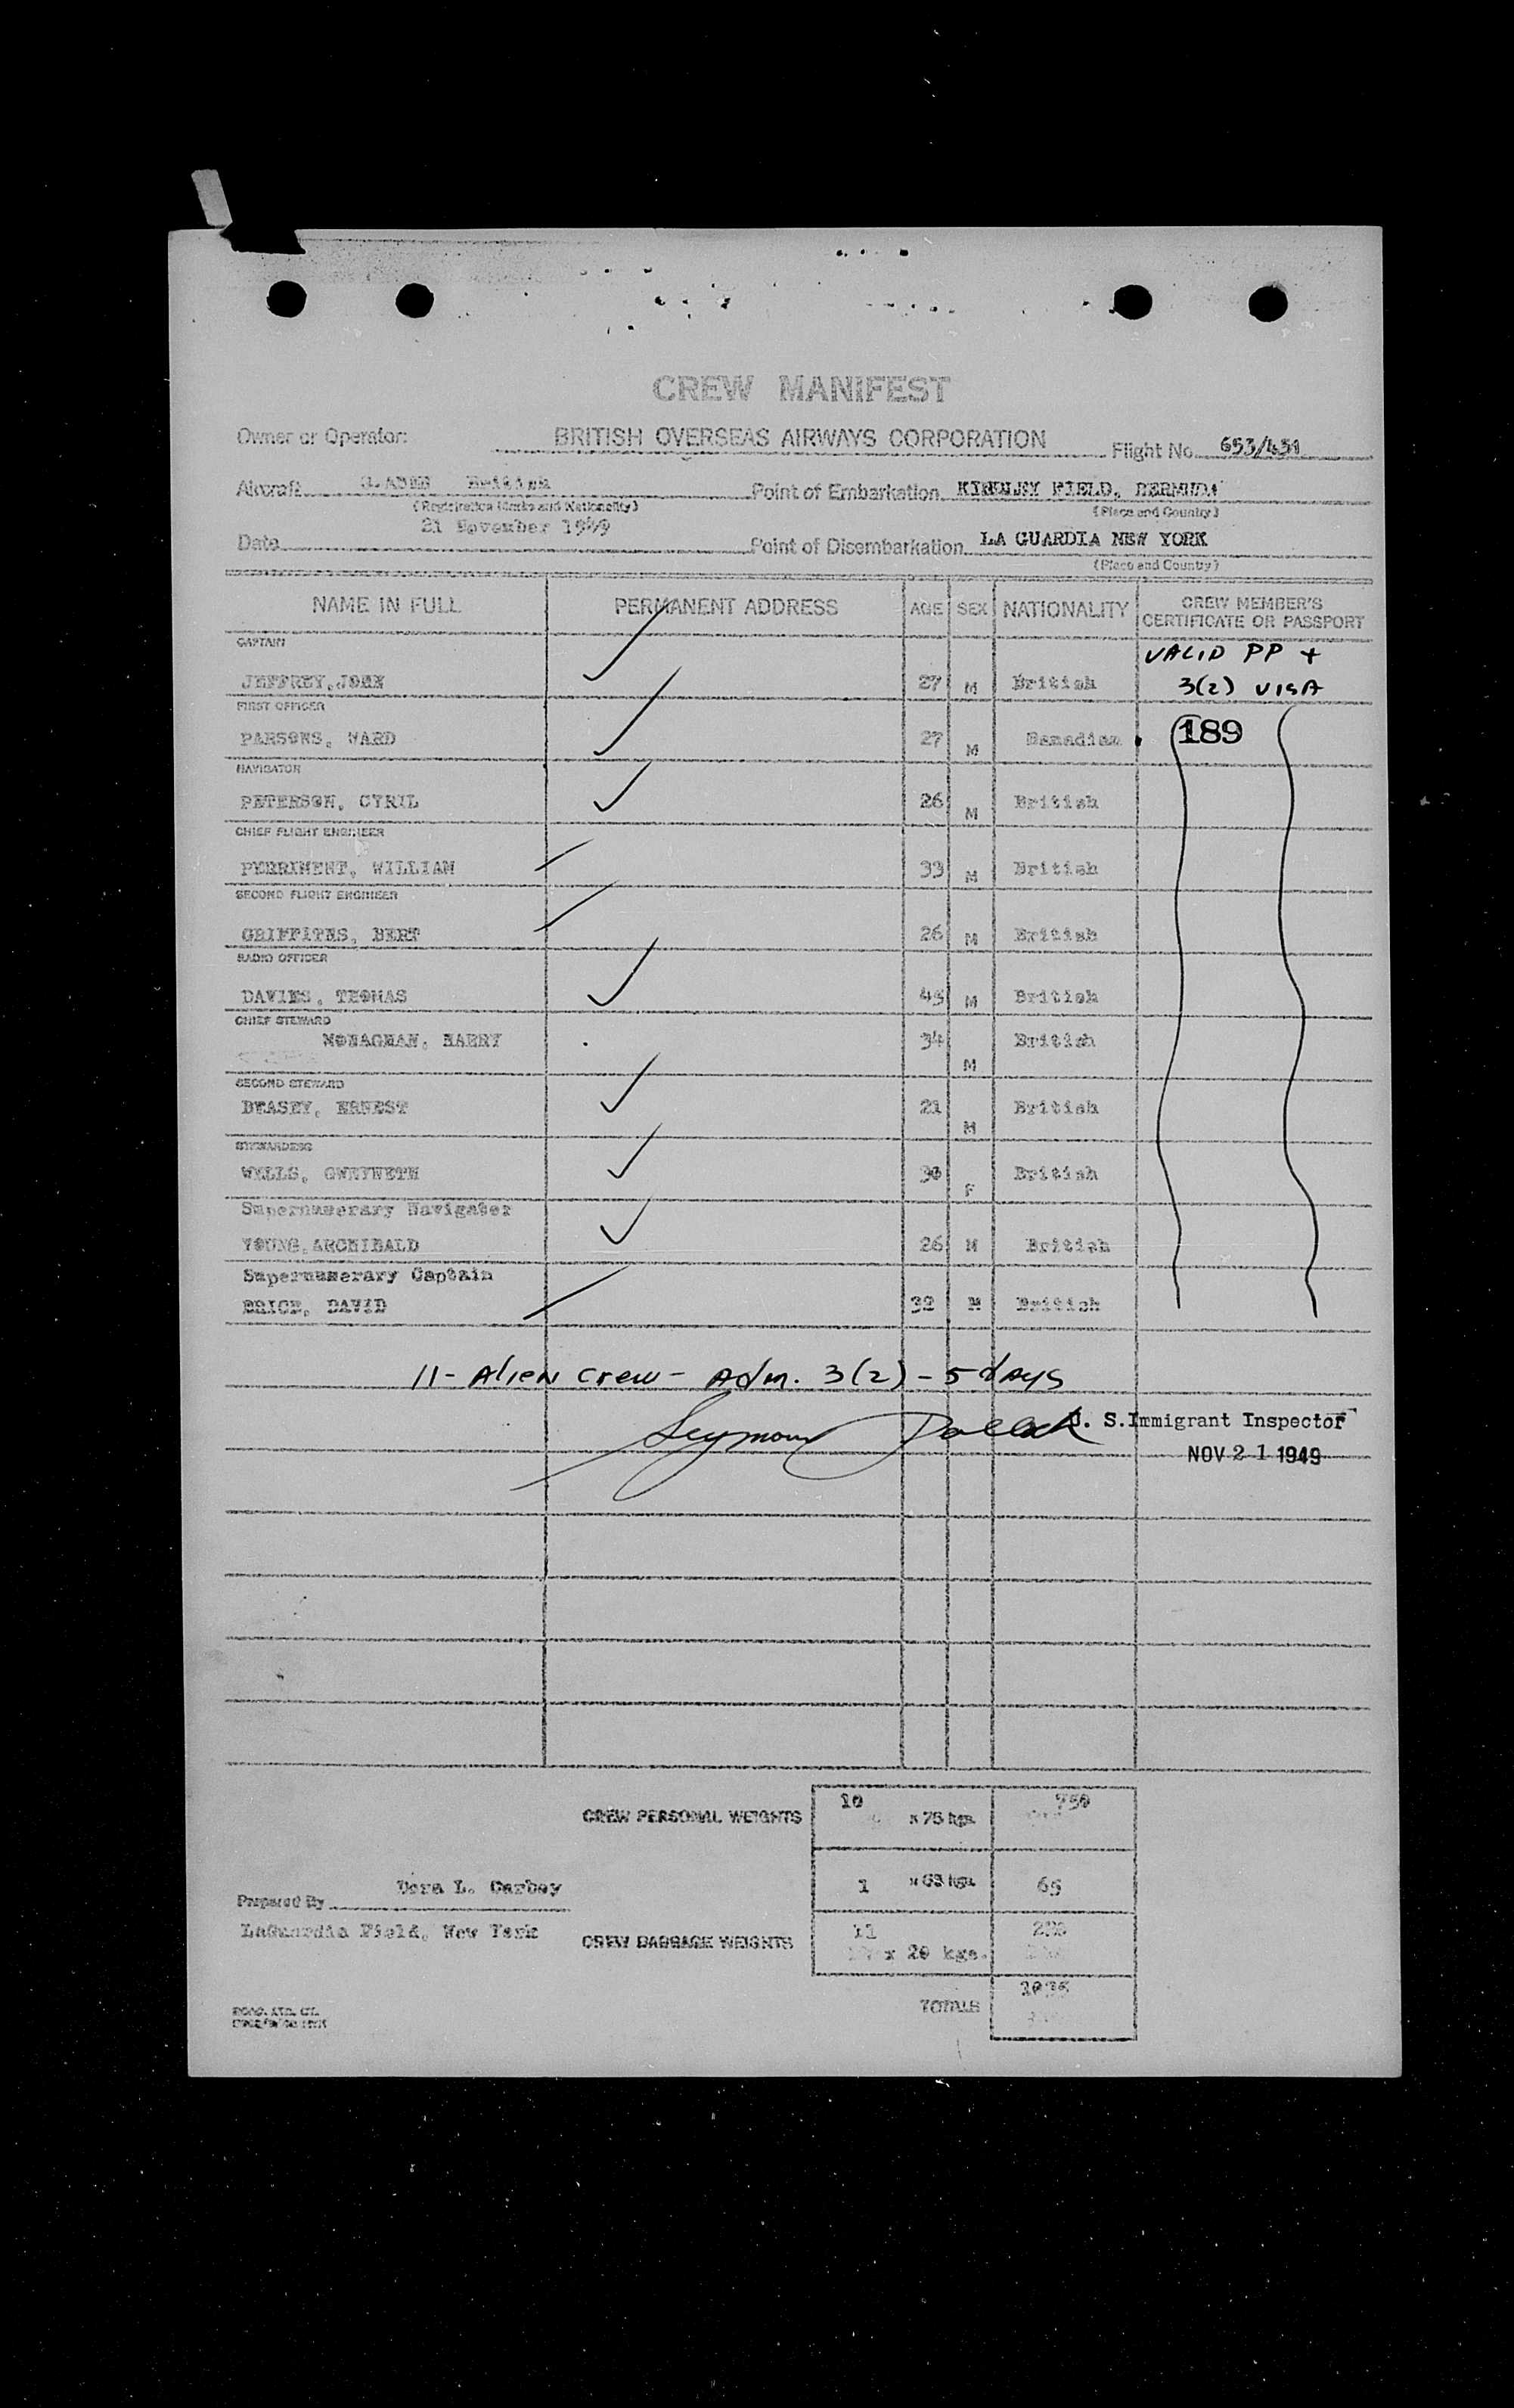 CREW MANIFEST
Owner or Operator: BRITISH OVERSEAS AIRWAYS CORPORATION Flight No. 653/431
Aircraft British Point of Embarkation KINDLEY FIELD, BERMUDA
(Registration Marks and Nationality) (Place and Country)
Date 21 November 1949 Point of Disembarkation LA GUARDIA NEW YORK
(Place and Country)
NAME IN FULL PERMANENT ADDRESS AGE SEX NATIONALITY CREW MEMBER'S CERTIFICATE OR PASSPORT
CAPTAIN VALID PP +
JEFFREY, JOHN 27 M British 3(2) VISA
FIRST OFFICER
PARSONS, WARD 27 M Canadian 189
NAVIGATOR
PETERSON, CYRIL 26 M British
CHIEF FLIGHT ENGINEER
PERRIMENT, WILLIAM 33 M British
SECOND FLIGHT ENGINEER
GRIFFITHS, BERT 26 M British
RADIO OFFICER
DAVIES, THOMAS 45 M British
CHIEF STEWARD
MONAGHAN, HARRY 34 M British
SECOND STEWARD
DEASEY, ERNEST 21 M British
STEWARDESS
WELLS, GWEYNETH 30 F British
Supernumerary Navigator
YOUNG, ARCHIBALD 26 M British
Supernumerary Captain
BRICE, DAVID 32 M British
11 - Alien Crew - Adm. 3(2) - 5 days
Seymour Pollack U. S. Immigrant Inspector
NOV 21 1949
CREW PERSONAL WEIGHTS 10 x 75 kgs. 750
1 x 65 kgs. 65
Prepared By Dora L. Carbey
LaGuardia Field, New York CREW BAGGAGE WEIGHTS 11 x 20 kgs. 220
TOTALS 1035